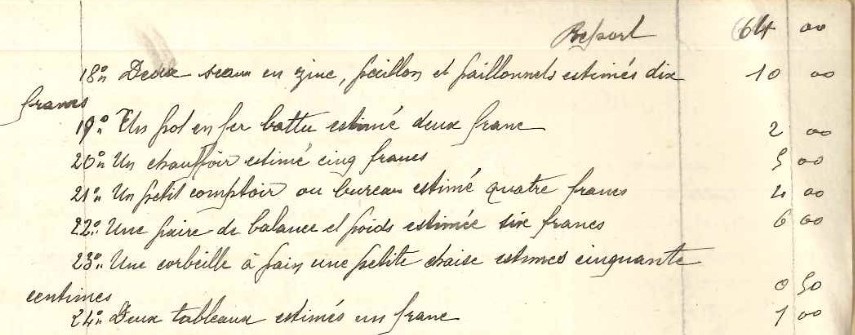 Report 64 00
18° Deux seaux en zinc, paillon et paillonnets estimés dix 10 00
francs
19° Un pot en fer battu estimé deux franc 2 00
20° Un chauffoir estimé cinq francs 5 00
21° Un petit comptoir ou bureau estimé quatre francs 4 00
22° Une paire de balance et poids estimée six francs 6 00
23° Une corbeille à pain une petite chaise estimés cinquante
centimes 0 50
24° Deux tableaux estimés un franc 1 00